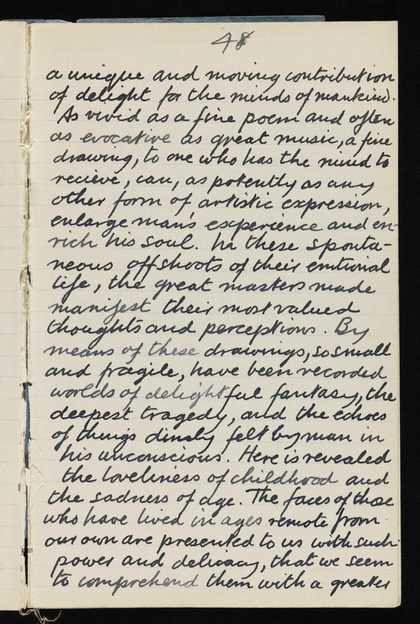 48
a unique and moving contribution
of delight for the minds of mankind.
As vivid as a fine poem and often
as evocative as great music, a fine
drawing, to one who has the mind to
recieve, can, as potently as any
other form of artistic expression,
enlarge man's experience and en-
rich his soul. In these sponta-
neous offshoots of their emtional
life, the great masters made
manifest their most valued
thoughts and perceptions. By
means of these drawings, so small
and fragile, have been recorded
worlds of delightful fantasy, the
deepest tragedy, and the echoes
of things dimly felt by man in
his unconscious. Here is revealed
the loveliness of childhood and
the sadness of age. The faces of those
who have lived in ages remote from
our own are presented to us with such
power and delicacy, that we seem
to comprehend them with a greater